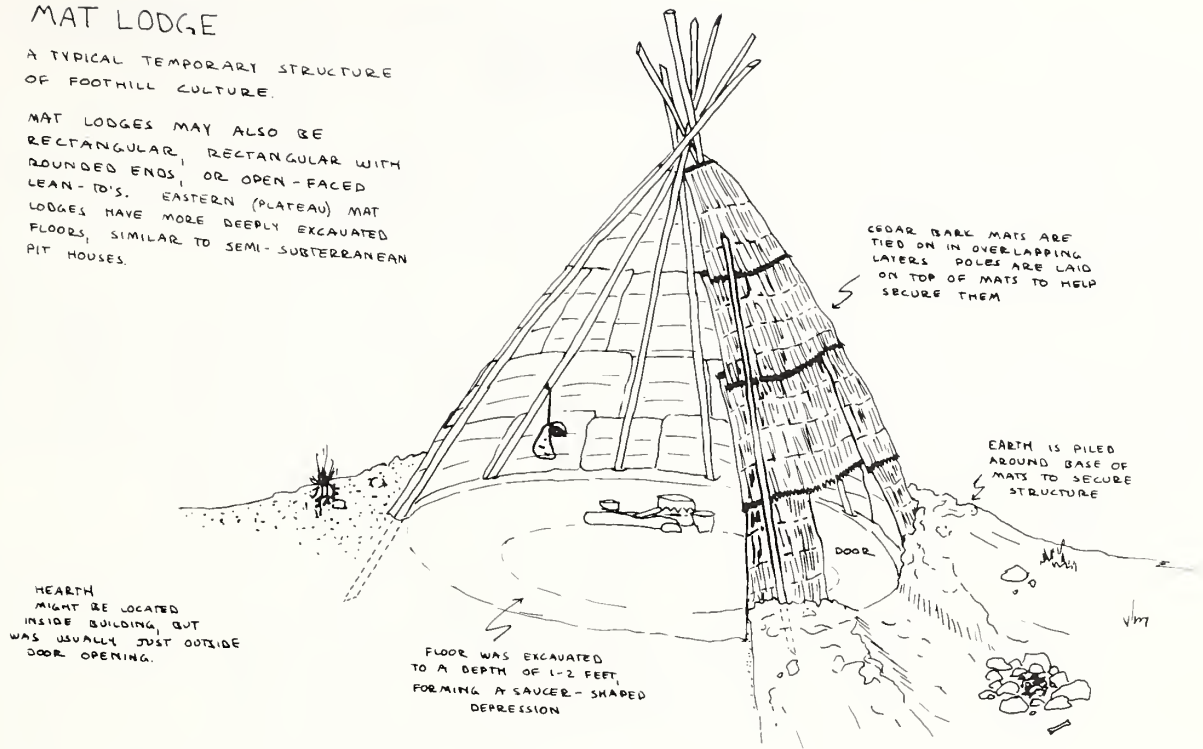 MAT LODGE
A TYPICAL TEMPORARY STRUCTURE
OF FOOTHILL CULTURE.
MAT LODGES MAY ALSO BE
RECTANGULAR, RECTANGULAR WITH
ROUNDED ENDS, OR OPEN-FACED
LEAN-TO'S. EASTERN (PLATEAU) MAT
LODGES HAVE MORE DEEPLY EXCAVATED
FLOORS, SIMILAR TO SEMI-SUBTERRANEAN
PIT HOUSES.
CEDAR BARK MATS ARE
TIED ON IN OVERLAPPING
LAYERS POLES ARE LAID
ON TOP OF MATS TO HELP
SECURE THEM
EARTH IS PILED
AROUND BASE OF
MATS TO SECURE
STRUCTURE
DOOR
HEARTH
MIGHT BE LOCATED
INSIDE BUILDING, BUT
WAS USUALLY JUST OUTSIDE
DOOR OPENING.
FLOOR WAS EXCAVATED
TO A DEPTH OF 1-2 FEET,
FORMING A SAUCER-SHAPED
DEPRESSION